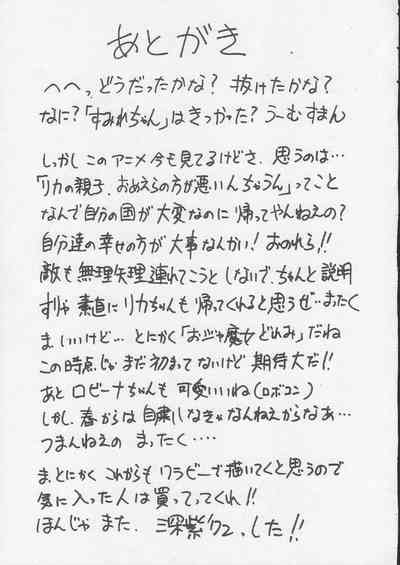 あとがき
へへっ どうだったかな? 抜けたかな?
なに?「すみれちゃん」はきつかった? うーむ すまん
しっかし このアニメ 今も見てるけどさ、思うのは…
「リカの親子、おめえらの方が悪いんちゃうん」ってこと
なんで自分の国が大変なのに 帰ってやんねえの?
自分達の幸せの方が大事なんかい! おのれら!!
敵も無理矢理連れてこうとしないで、ちゃんと説明
すりゃ 素直にリカちゃんも帰ってくれると思うぜ…まったく
ま、いいけど… とにかく「おジャ魔女どれみ」だね
この時点じゃまだ初まってないけど 期待大だ!!
あと ロビーナちゃんも 可愛いいね(ロボコン)
しかし、春からは自粛しなきゃなんねえからなあ…
つまんねえの まったく‥‥
ま、とにかく これからも ワラビーで描いてくと思うので
気に入った人は買ってってくれ!!
ほんじゃ また、 深紫 した!!